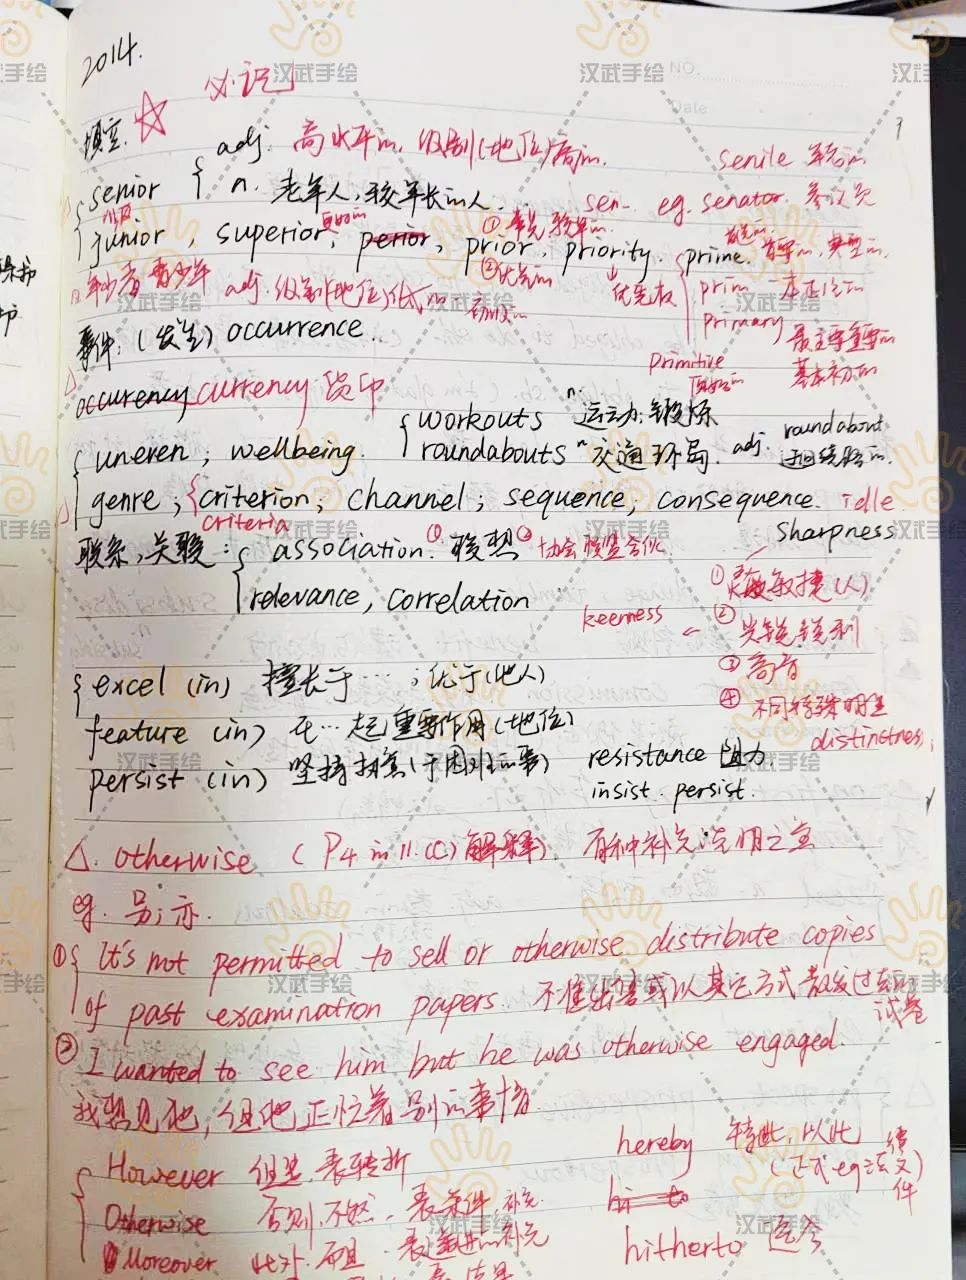 2014.
必识
NO.
Date
填空.
senior { adj. 高水平的, 级别(地位)高的. senile
n. 老年人, 较年长的人. sen- eg. senator. 参议员
junior, superior, perior, prior, priority. prime.
年少者 青少年 adj. 级别(地位)低的. ②优先的 优先权 prim
primary 最主要重要的
事件: (发生) occurrence. primitive 基本初的
occurency currency 货币
uneven; wellbeing. { workouts n. 运动, 锻炼
roundabouts n. 交通环岛. adj. roundabout 迂回绕路的.
genre; { criterion; channel; sequence; consequence. idle.
criteria sharpness
联系, 关联: { association. ① 联想 ② 协会 联盟合伙
relevance, correlation
keenness
① 灵敏敏捷(人)
② 尖锐锐利
③ 高音
④ 不同特殊明显
distinstness;
excel (in) 擅长于…; 优于(他人)
feature (in) 在…起重要作用(地位)
persist (in) 坚持 resistance 阻力.
insist. persist.
△. otherwise (P4 的 11. (C) 解释). 有种补充说明之意
eg. 另; 亦.
① It's not permitted to sell or otherwise distribute copies
of past examination papers. 不准出售或以其它方式散发过去的试卷
② I wanted to see him but he was otherwise engaged.
我想见他, 但他正忙着别的事情.
However 但是. 表转折 hereby 特此, 以此
(正式 eg 法律文件)
Otherwise 否则, 不然. 表条件, 补充
Moreover 此外. 而且. 表递进的补充 hitherto 迄今
汉武手绘